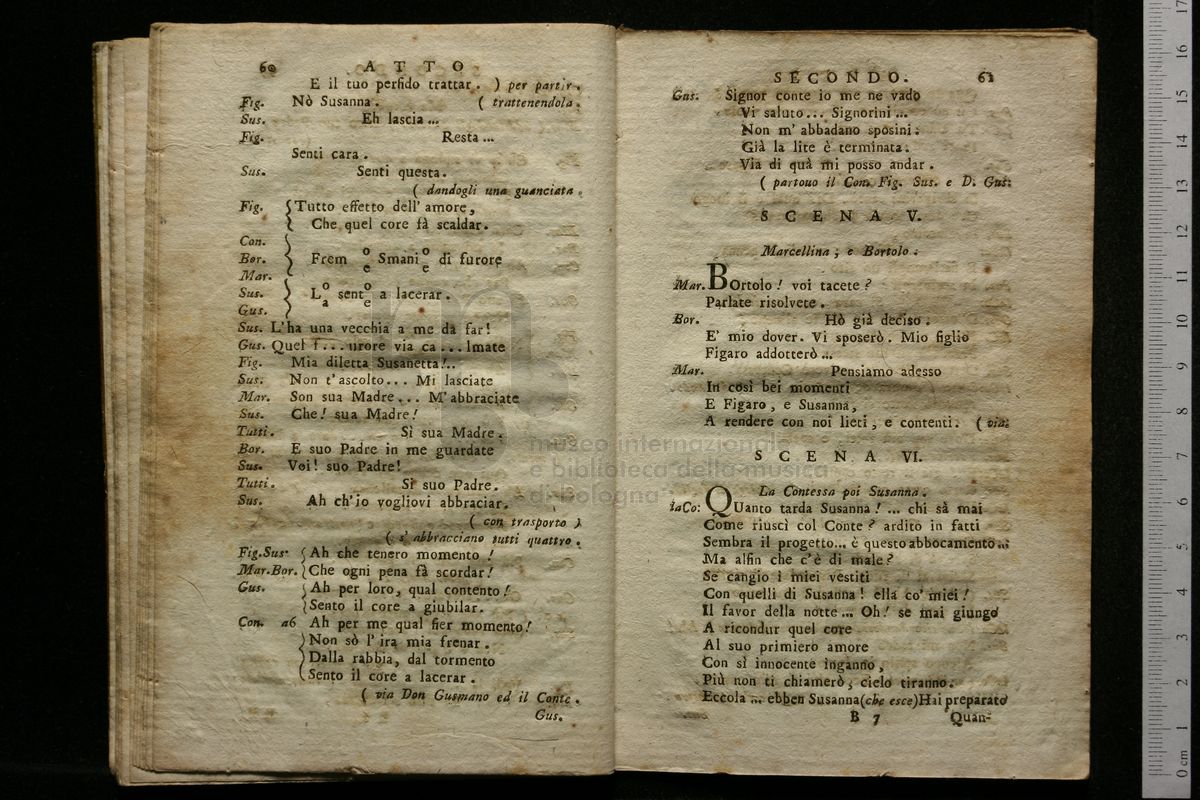 60 ATTO
E il tuo perfido trattar. ) per partir.
Fig. Nò Susanna. ( trattenendola.
Sus. Eh lascia ...
Fig. Resta ...
Senti cara.
Sus. Senti questa.
( dandogli una guanciata.
Fig. Tutto effetto dell' amore,
Che quel core fà scaldar.
Con.
Bor. Frem o e Smani o e di furore
Mar.
Sus. L o a sent o e a lacerar.
Gus.
Sus. L'ha una vecchia a me da far!
Gus. Quel f... urore via ca... lmate
Fig. Mia diletta Susanetta!..
Sus. Non t'ascolto... Mi lasciate
Mar. Son sua Madre... M'abbraciate
Sus. Che! sua Madre!
Tutti. Sì sua Madre.
Bor. E suo Padre in me guardate
Sus. Voi! suo Padre!
Tutti. Sì suo Padre.
Sus. Ah ch'io vogliovi abbraciar.
( con trasporto )
( s' abbracciano tutti quattro.
Fig.Sus. Ah che tenero momento!
Mar.Bor. Che ogni pena fà scordar!
Gus. Ah per loro, qual contento!
Sento il core a giubilar.
Con. a6 Ah per me qual fier momento!
Non sò l' ira mia frenar.
Dalla rabbia, dal tormento
Sento il core a lacerar.
( via Don Gusmano ed il Conte.
Gus.
SECONDO. 61
Gus. Signor conte io me ne vado
Vi saluto... Signorini...
Non m' abbadano sposini:
Già la lite è terminata.
Via di quà mi posso andar.
( partouo il Con. Fig. Sus. e D. Gus:
SCENA V.
Marcellina, e Bortolo.
Mar. BOrtolo! voi tacete?
Parlate risolvete.
Bor. Hò già deciso.
E' mio dover. Vi sposerò. Mio figlio
Figaro addotterò...
Mar. Pensiamo adesso
In così bei momenti
E Figaro, e Susanna,
A rendere con noi lieti, e contenti. ( via:
SCENA VI.
La Contessa poi Susanna.
laCo: QUanto tarda Susanna! ... chi sà mai
Come riuscì col Conte? ardito in fatti
Sembra il progetto... è questo abbocamento...
Ma alfin che c'è di male?
Se cangio i miei vestiti
Con quelli di Susanna! ella co' miei!
Il favor della notte ... Oh! se mai giungo
A ricondur quel core
Al suo primiero amore
Con sì innocente inganno,
Più non ti chiamerò, cielo tiranno.
Eccola ... ebben Susanna (che esce) Hai preparato
B 7 Quan-
museo internazionale
e biblioteca della musica
di bologna
0 cm 1 2 3 4 5 6 7 8 9 10 11 12 13 14 15 16 17